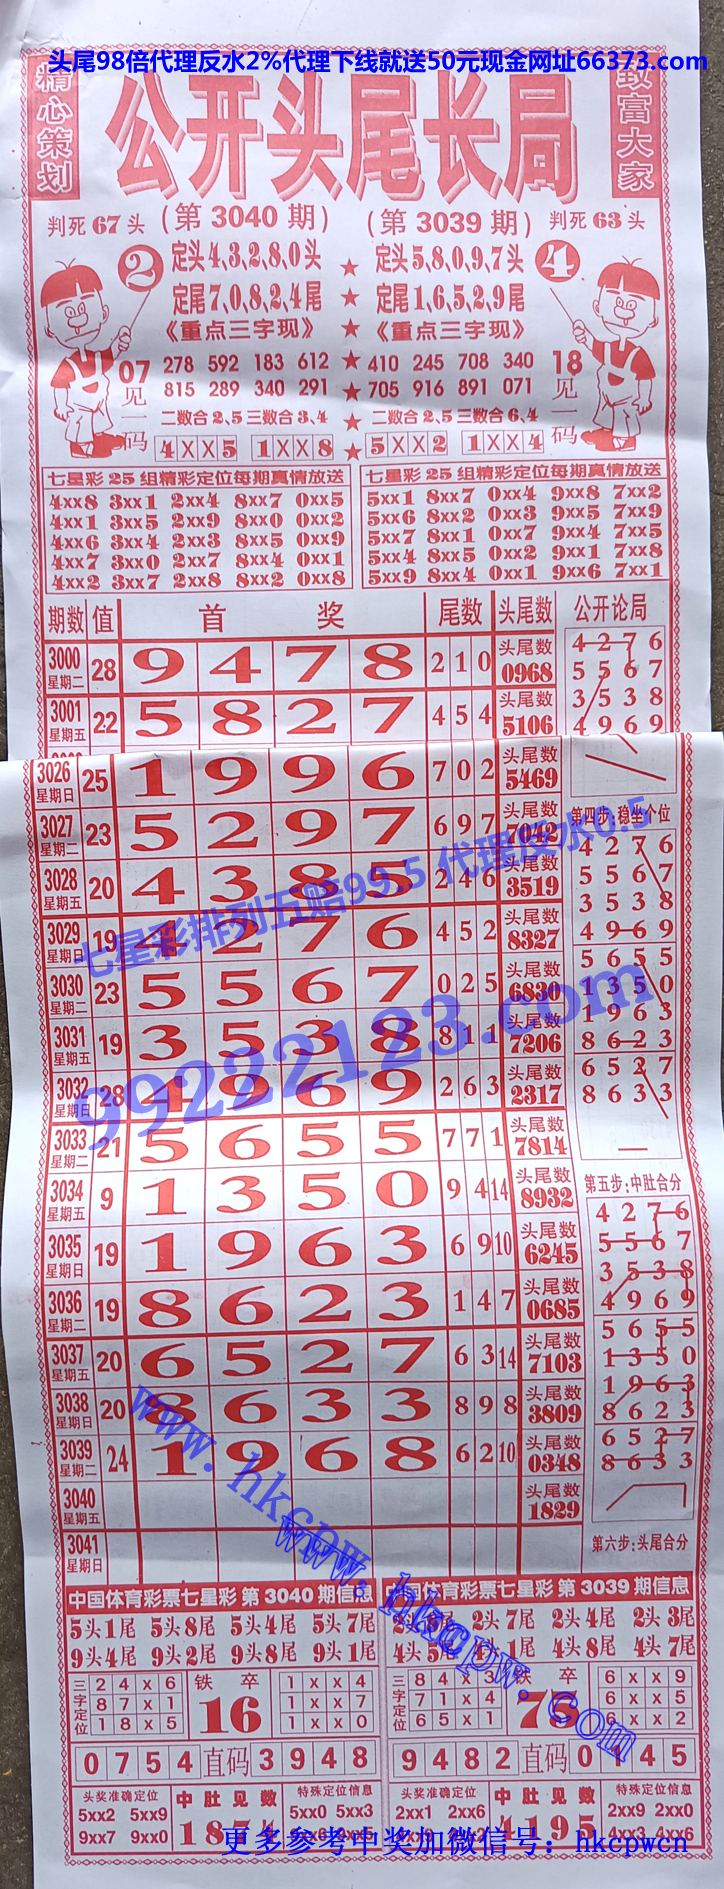 头尾98倍代理反水2%代理下线就送50元现金网址66373.com
精心策划
公开头尾长局
致富大家
判死67头 (第3040期) (第3039期) 判死63头
② 定头4、3、2、8、0头 ★ 定头5、8、0、9、7头 ④
定尾7、0、8、2、4尾 ★ 定尾1、6、5、2、9尾
《重点三字现》 ★ 《重点三字现》
07见一码 278 592 183 612 ★ 410 245 708 340 18见一码
815 289 340 291 ★ 705 916 891 071
二数合2、5三数合3、4 ★ 二数合2、5三数合6、4
4XX5 1XX8 ★ 5XX2 1XX4
七星彩25组精彩定位每期真情放送 七星彩25组精彩定位每期真情放送
4xx8 3xx1 2xx4 8xx7 0xx5 5xx1 8xx7 0xx4 9xx8 7xx2
4xx1 3xx5 2xx9 8xx0 0xx2 5xx6 8xx2 0xx3 9xx5 7xx9
4xx6 3xx4 2xx3 8xx5 0xx9 5xx7 8xx1 0xx7 9xx4 7xx5
4xx7 3xx0 2xx7 8xx4 0xx1 5xx4 8xx5 0xx2 9xx1 7xx8
4xx2 3xx7 2xx8 8xx2 0xx8 5xx9 8xx4 0xx1 9xx6 7xx1
期数 值 首奖 尾数 头尾数 公开论局
3000 星期二 28 9 4 7 8 2 1 0 头尾数 0968
3001 星期五 22 5 8 2 7 4 5 4 头尾数 5106
4 2 7 6
5 5 6 7
3 5 3 8
4 9 6 9
3026 星期日 25 1 9 9 6 7 0 2 头尾数 5469
3027 星期二 23 5 2 9 7 6 9 7 头尾数 7042
3028 星期五 20 4 3 8 5 2 4 6 头尾数 3519
3029 星期日 19 4 2 7 6 4 5 2 头尾数 8327
3030 星期二 23 5 5 6 7 0 2 5 头尾数 6830
3031 星期五 19 3 5 3 8 8 1 1 头尾数 7206
3032 星期日 28 4 9 6 9 2 6 3 头尾数 2317
3033 星期二 21 5 6 5 5 7 7 1 头尾数 7814
3034 星期五 9 1 3 5 0 9 4 14 头尾数 8932
3035 星期日 19 1 9 6 3 6 9 10 头尾数 6245
3036 星期二 19 8 6 2 3 1 4 7 头尾数 0685
3037 星期五 20 6 5 2 7 6 3 14 头尾数 7103
3038 星期日 20 8 6 3 3 8 9 8 头尾数 3809
3039 星期二 24 1 9 6 8 6 2 10 头尾数 0348
3040 星期五 头尾数 1829
3041 星期日
第四步:稳坐个位
4 2 7 6
5 5 6 7
3 5 3 8
4 9 6 9
5 6 5 5
1 3 5 0
1 9 6 3
8 6 2 3
6 5 2 7
8 6 3 3
第五步:中肚合分
4 2 7 6
5 5 6 7
3 5 3 8
4 9 6 9
5 6 5 5
1 3 5 0
1 9 6 3
8 6 2 3
6 5 2 7
8 6 3 3
第六步:头尾合分
七星彩排列五赔99.5 代理反水0.5
99222123.com
www.hkcpw.com
www.hkcpw.com
中国体育彩票七星彩第3040期信息 中国体育彩票七星彩第3039期信息
5头1尾 5头8尾 5头4尾 5头7尾 2头7尾 2头4尾 2头3尾
9头4尾 9头2尾 9头8尾 9头1尾 4头5尾 4头8尾 4头7尾
三字定位 铁卒 16 三字定位 铁卒 75
2 4 x 6 1 x x 4 8 4 x 3 6 x x 9
8 7 x 1 1 x x 7 7 1 x 4 6 x x 5
1 8 x 5 1 x x 0 6 5 x 1 6 x x 2
0 7 5 4 直码 3 9 4 8 9 4 8 2 直码 0 1 4 5
头奖准确定位 中肚见数 特殊定位信息 头奖准确定位 中肚见数 特殊定位信息
5xx2 5xx9 5xx0 5xx3 2xx1 2xx6 2xx9 2xx0
9xx7 9xx0 4195 4xx3 4xx6
更多参考中奖加微信号：hkcpwcn